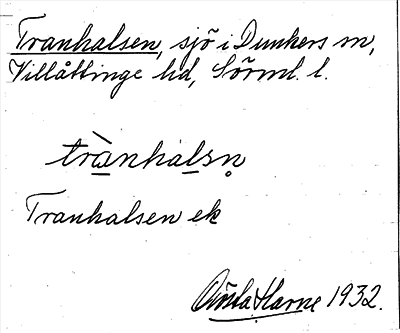 Tranhalsen, sjö i Dunkers sn,
Villåttinge hd, Sörml. l.
trànhalsn̥
Tranhalsen ek
Harne 1932.